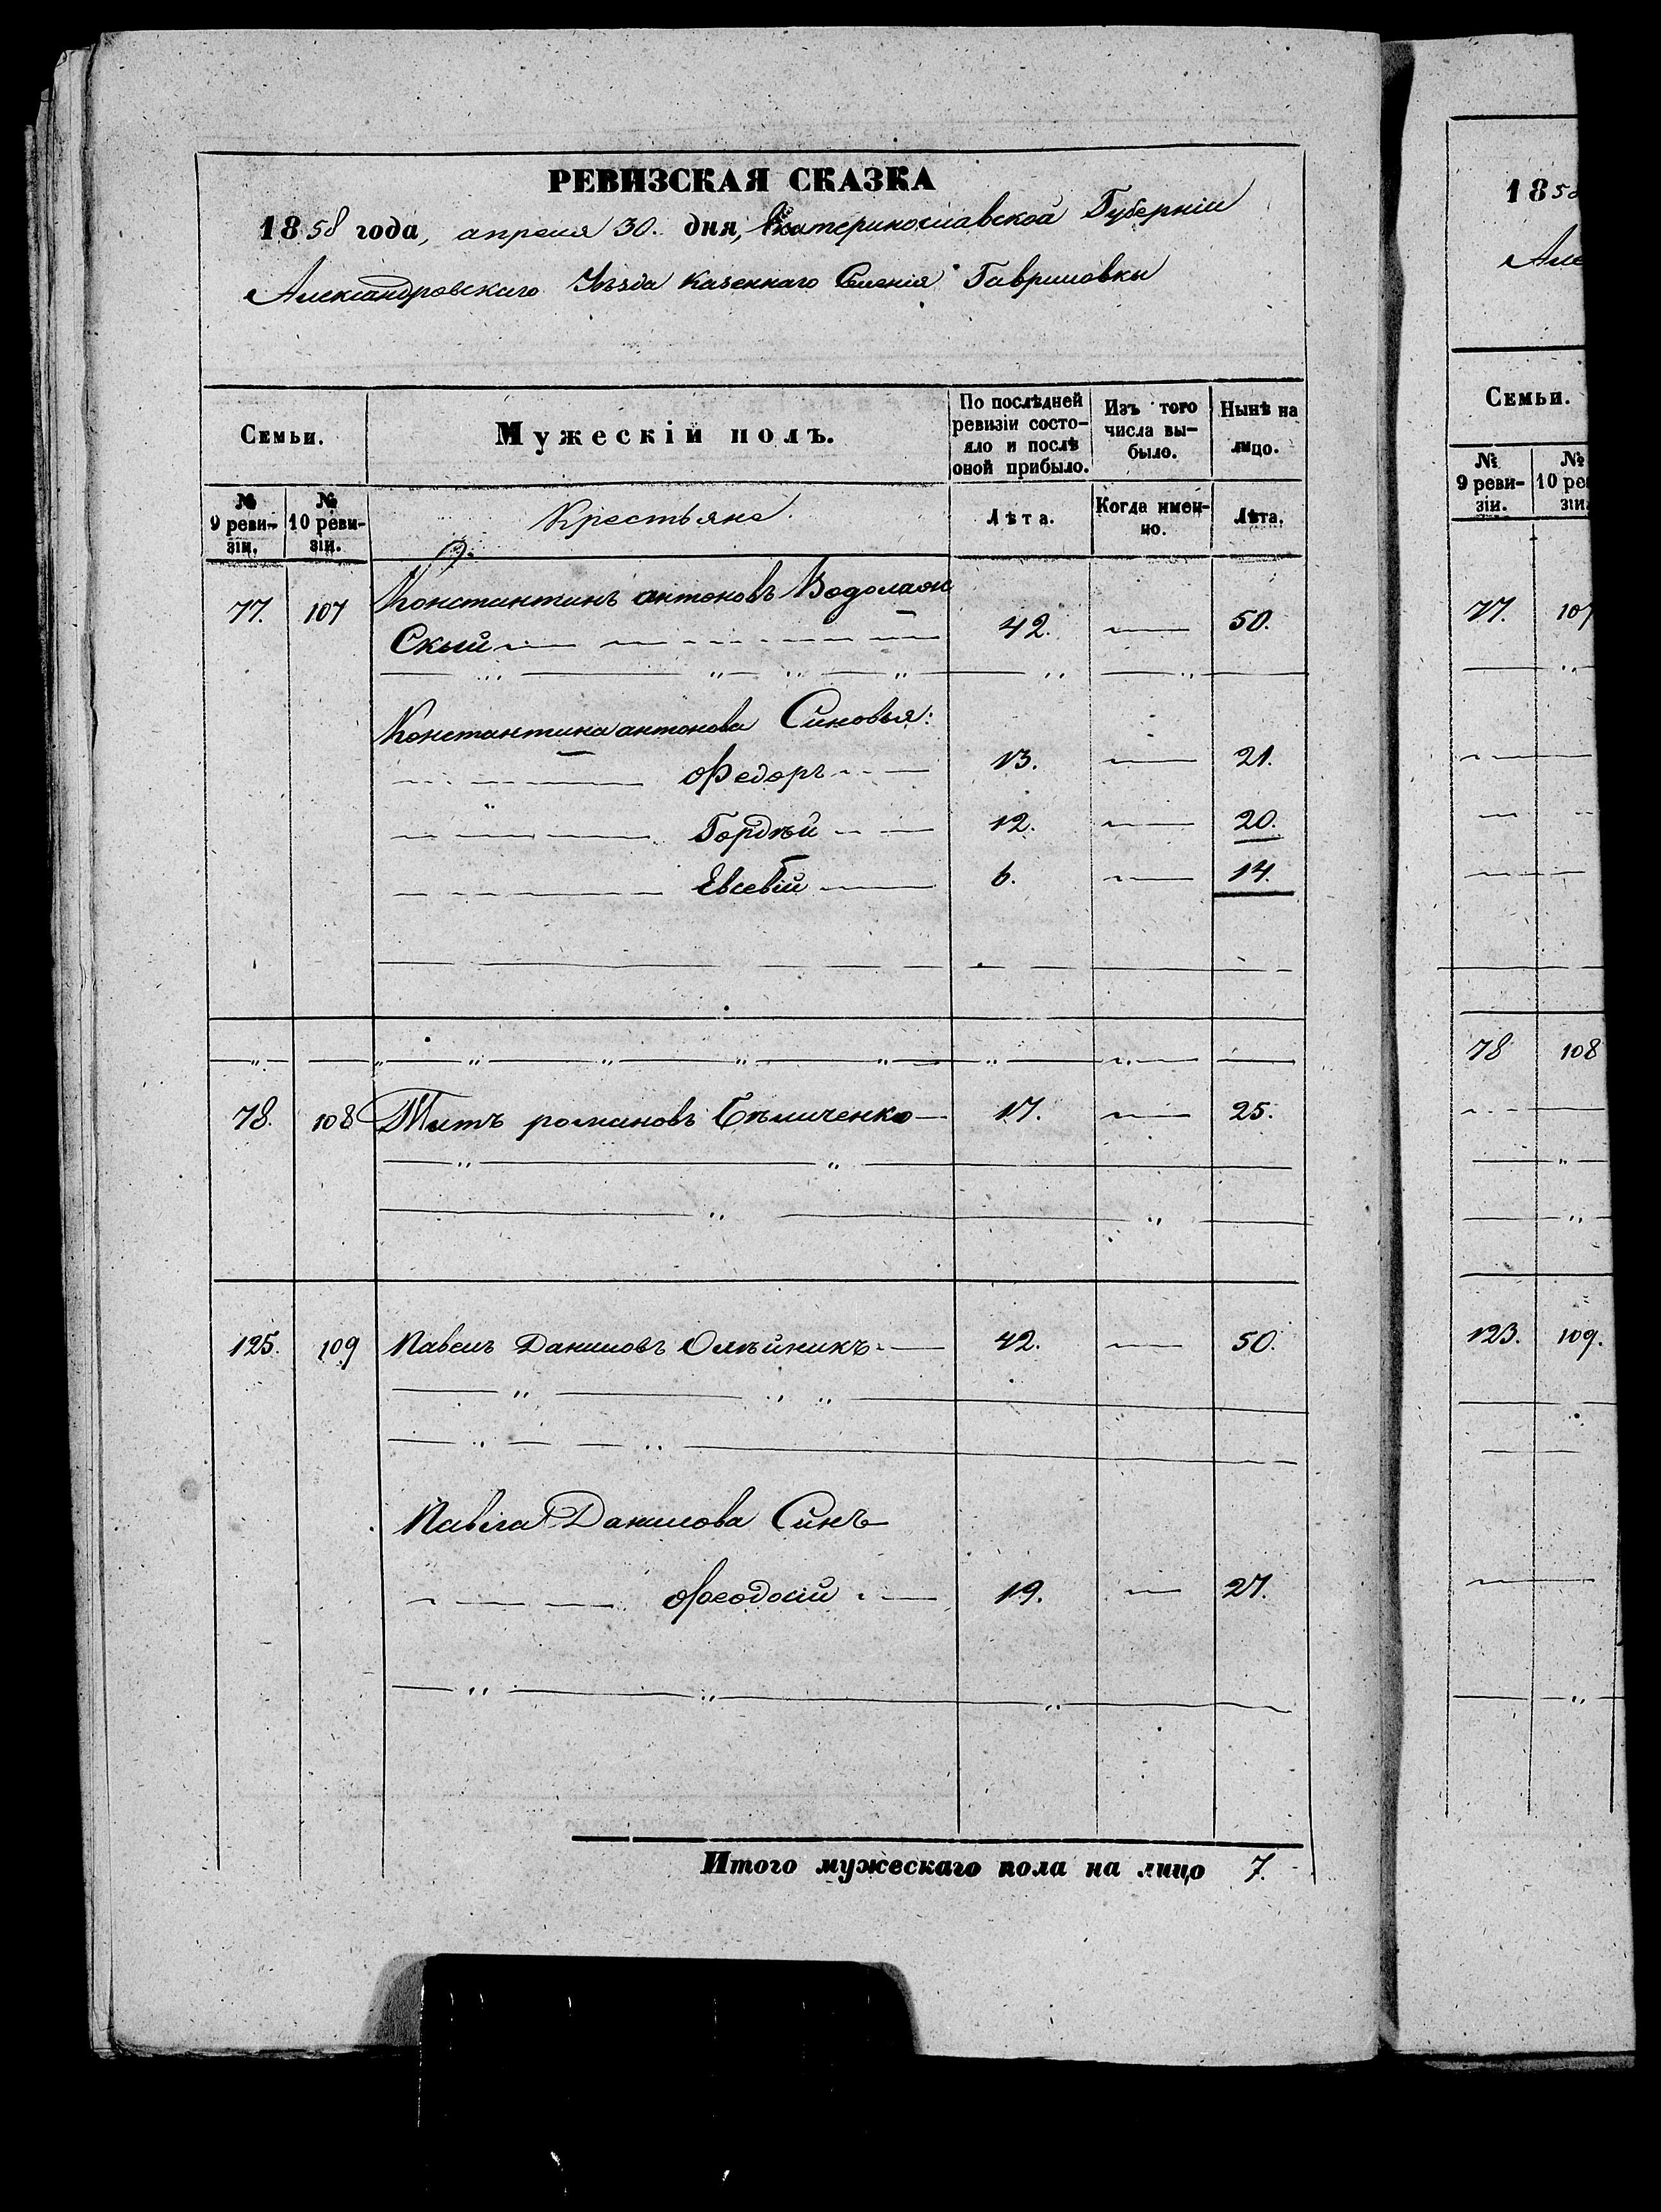 РЕВИЗСКАЯ СКАЗКА
1858 года, апреля 30. дня, Екатеринославской Губерніи
Александровскаго Уѣзда казеннаго Селенія Гавриловки
Семьи.
Мужескій полъ.
По послѣдней ревизіи состо-
яло и послѣ оной прибыло.
Изъ того числа вы-
было.
Нынѣ на лицо.
№ 9 реви-
зіи.
№ 10 реви-
зіи.
Крестьяне
Лѣта.
Когда имен-
но.
Лѣта.
77. 107 Константинъ антоновъ Водолаж
Скый 42. 50.
Константина антонова Сыновья:
Федоръ 13. 21.
Гордѣй 12. 20.
Евсевій 6. 14.
78. 108 Титъ романовъ Бѣличенко 17. 25.
125. 109 Павелъ Даниловъ Олѣйникъ 42. 50.
Павла Данилова Сынъ
Феодосій 19. 27.
Итого мужескаго пола на лицо 7.
1858
Але
Семьи.
№ 9 реви-
зіи.
№ 10 реви
зіи.
77. 107
78 108
123. 109.